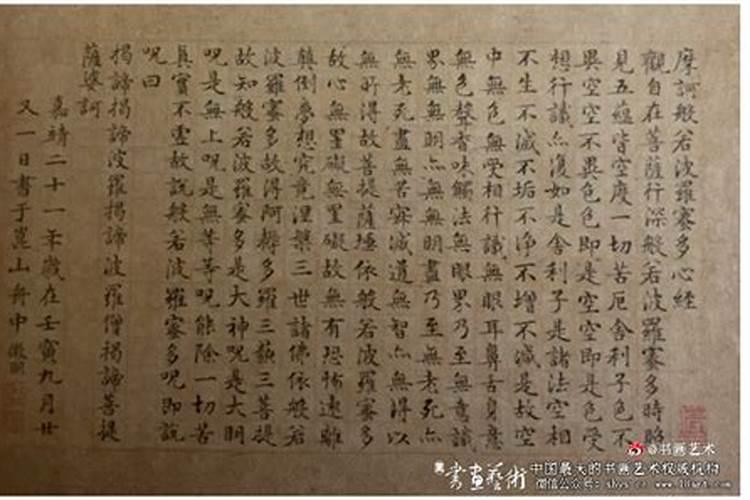 摩訶般若波羅蜜多心經
觀自在菩薩行深般若波羅蜜多時照
見五蘊皆空度一切苦厄舍利子色不
異空空不異色色即是空空即是色受
想行識亦復如是舍利子是諸法空相
不生不滅不垢不淨不增不減是故空
中無色無受相行識無眼耳鼻舌身意
無色聲香味觸法無眼界乃至無意識
界無無明亦無無明盡乃至無老死亦
無老死盡無苦寂滅道無智亦無得以
無所得故菩提薩埵依般若波羅蜜多
故心無罣礙無罣礙故無有恐怖遠離
顛倒夢想究竟涅槃三世諸佛依般若
波羅蜜多故得阿耨多羅三藐三菩提
故知般若波羅蜜多是大神呪是大明
呪是無上呪是無等等呪能除一切苦
真實不虛故說般若波羅蜜多呪即說
呪曰
揭諦揭諦波羅揭諦波羅僧揭諦菩提
薩婆訶
嘉靖二十一年歲在壬寅九月廿
又一日書于崑山舟中徵明
@书画艺术
書畫藝術 中国最大的书画艺术权威机构
微信公众号: